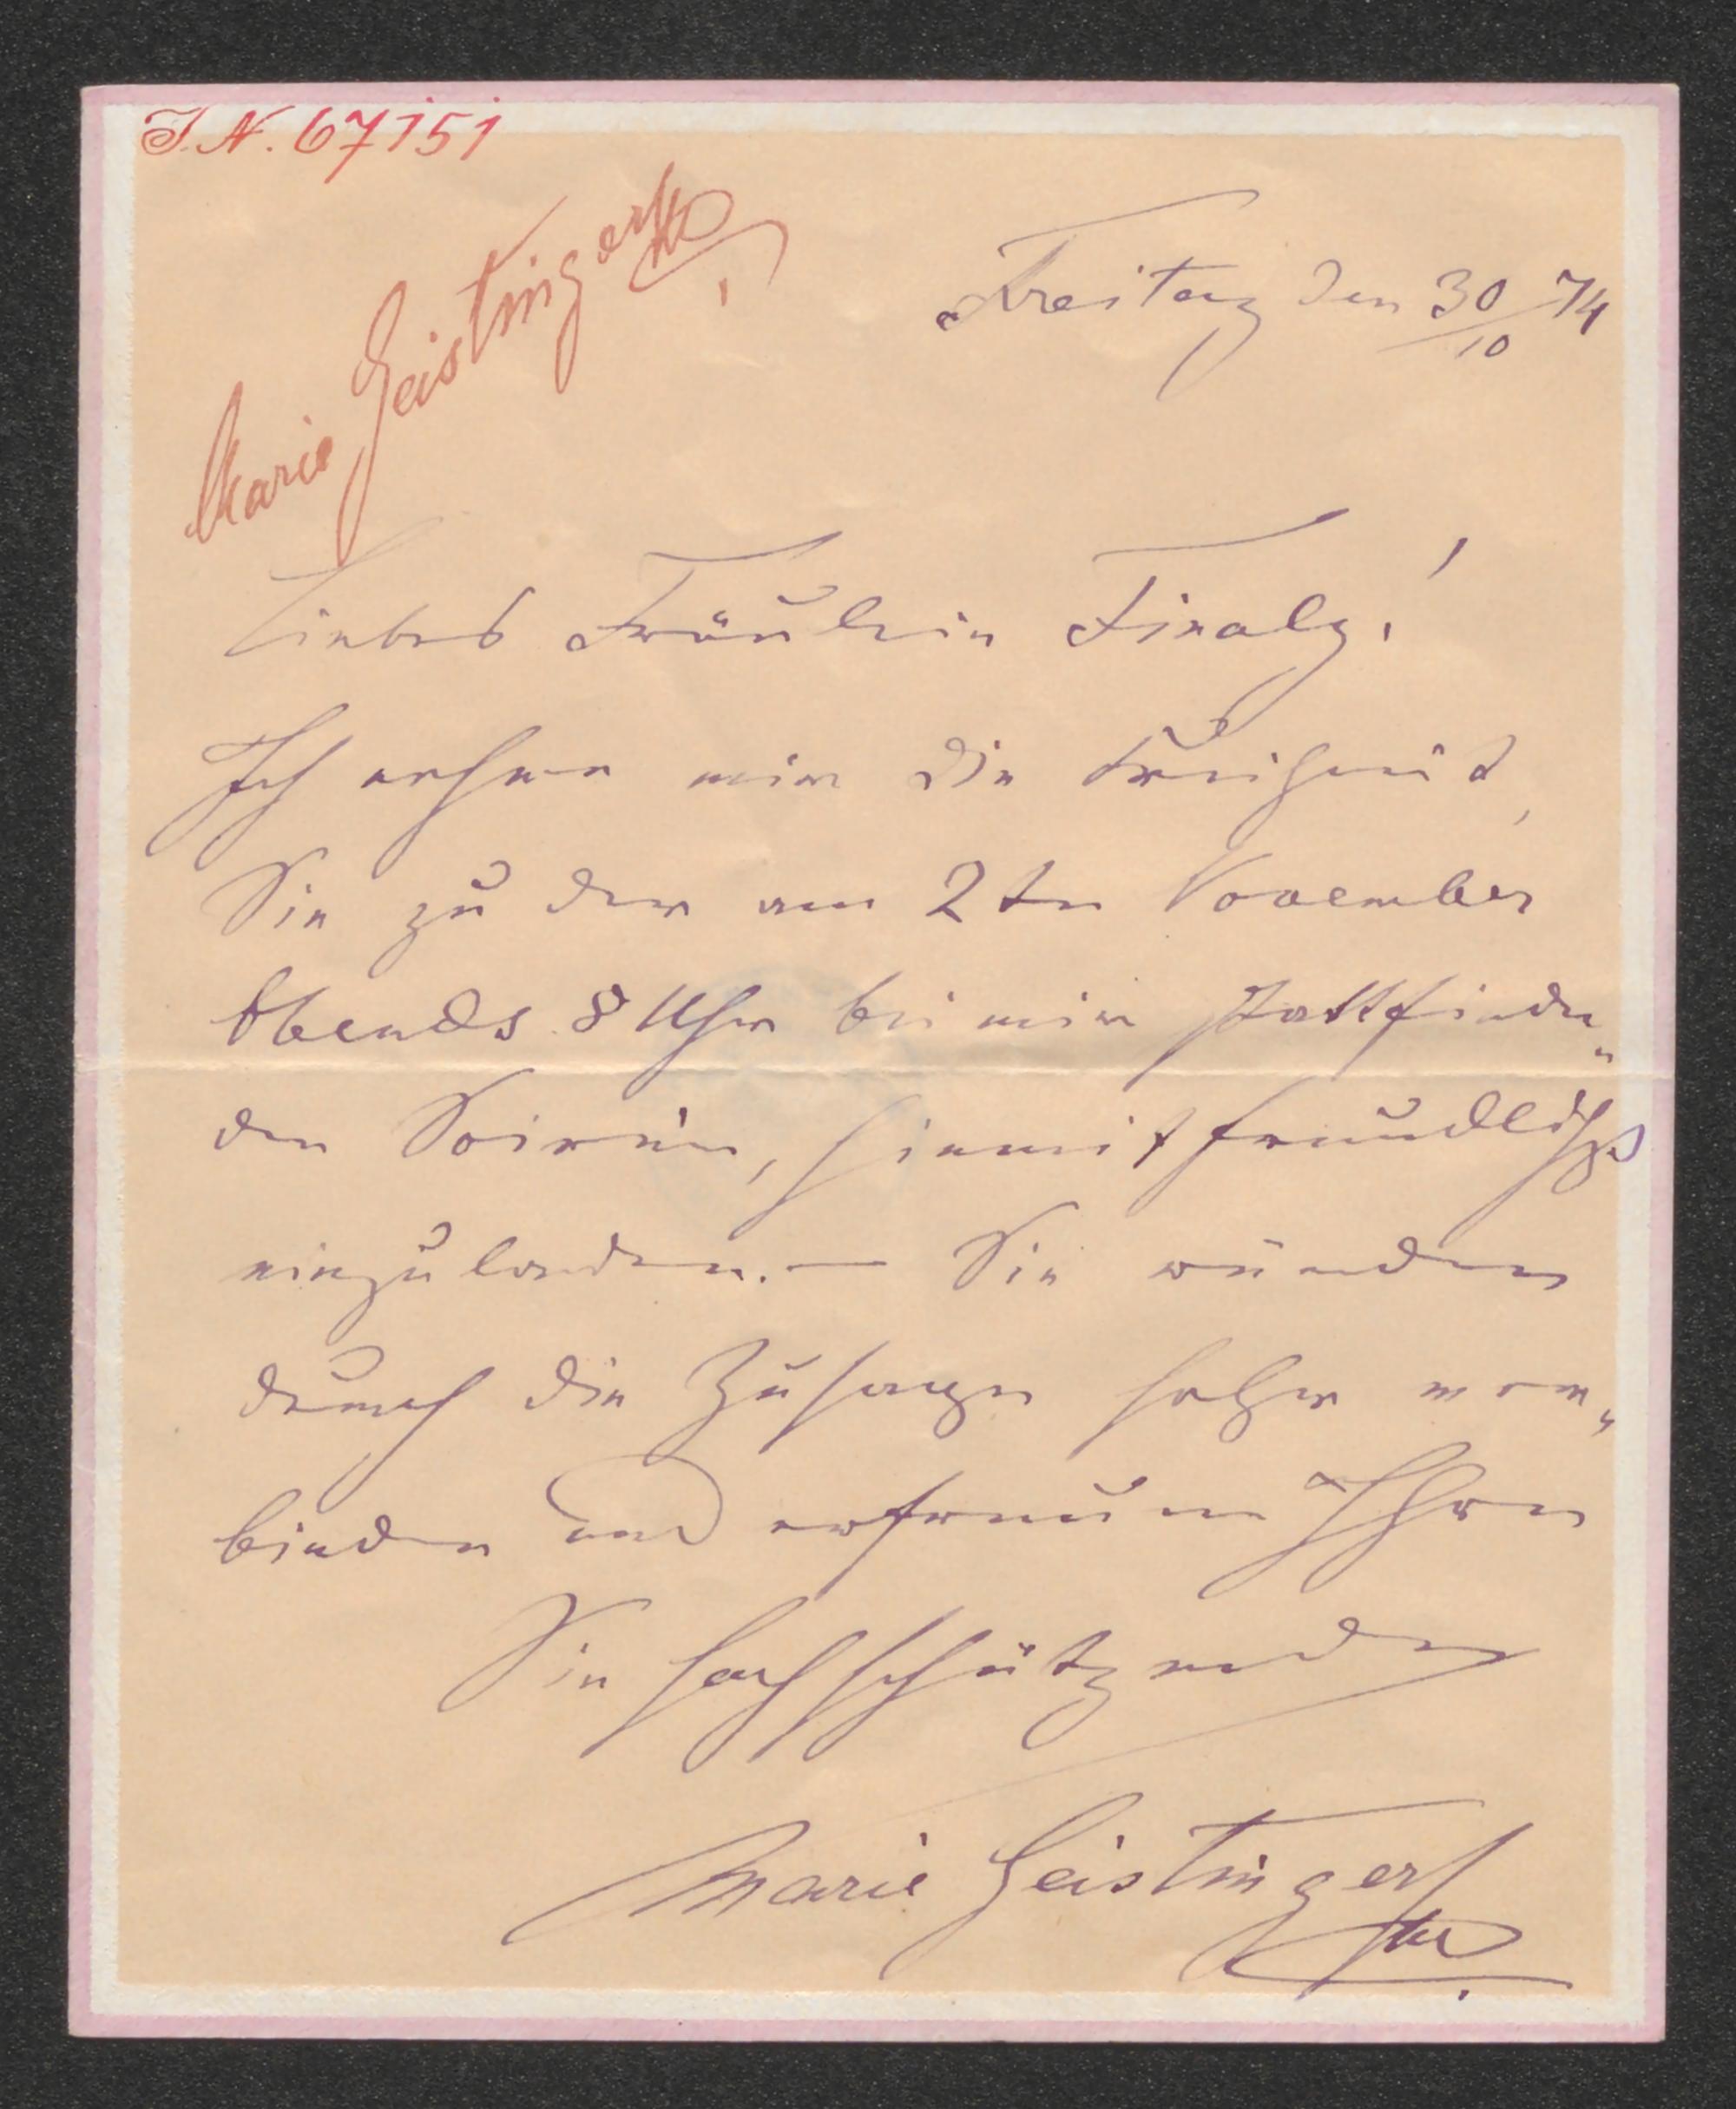 I.N. 67151
Marie Geistinger
Freitag den 30/10 74
Liebes Fräulein Finaly!
Ich nehme mir die Freiheit,
Sie zu der am 2ten November
Abends 8 Uhr bei mir stattfinden„
den Soirée, hiemit freundlichst
einzuladen. — Sie würden
durch die Zusage sehr ver„
binden und erfreuen Ihre
Sie hochschätzende
Marie Geistinger